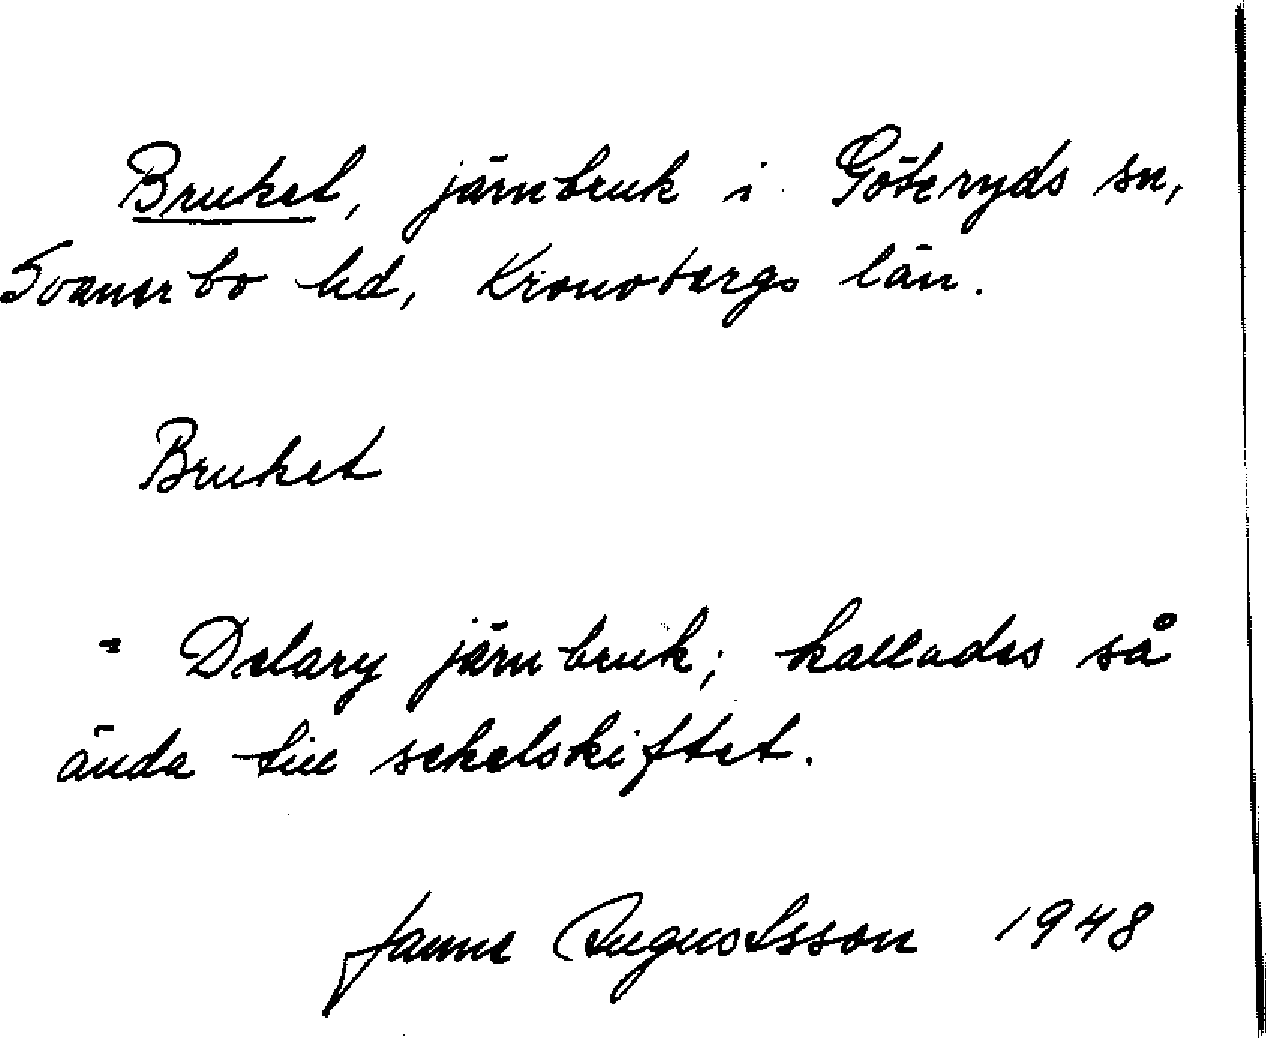 Bruket, järnbruk i Göteryds sn,
Sunnerbo hd, Kronobergs län.
Bruket
= Delary järnbruk; kallades så
ända till sekelskiftet.
Janne Augustsson 1948